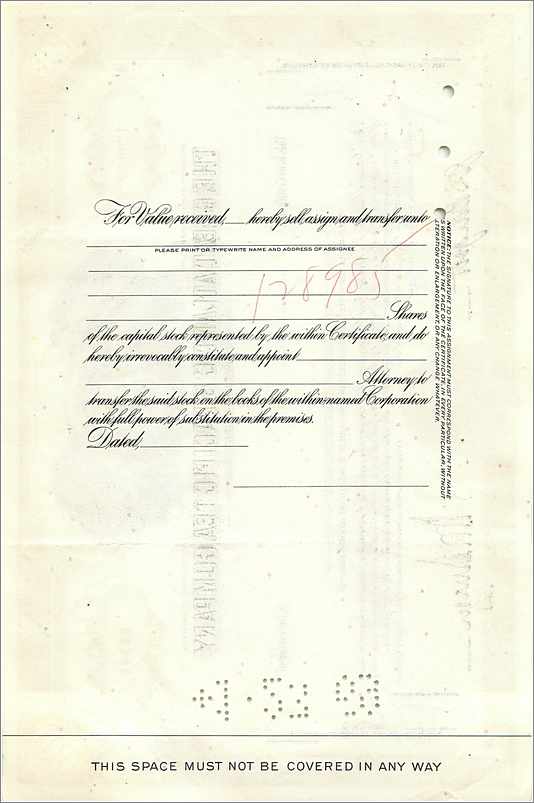 For Value received, hereby sell, assign and transfer unto
PLEASE PRINT OR TYPEWRITE NAME AND ADDRESS OF ASSIGNEE
128985
Shares
of the capital stock represented by the within Certificate, and do
hereby irrevocably constitute and appoint
Attorney, to
transfer the said stock on the books of the within-named Corporation
with full power of substitution in the premises.
Dated,
NOTICE: THE SIGNATURE TO THIS ASSIGNMENT MUST CORRESPOND WITH THE NAME
AS WRITTEN UPON THE FACE OF THE CERTIFICATE, IN EVERY PARTICULAR, WITHOUT
ALTERATION OR ENLARGEMENT, OR ANY CHANGE WHATEVER.
THIS SPACE MUST NOT BE COVERED IN ANY WAY